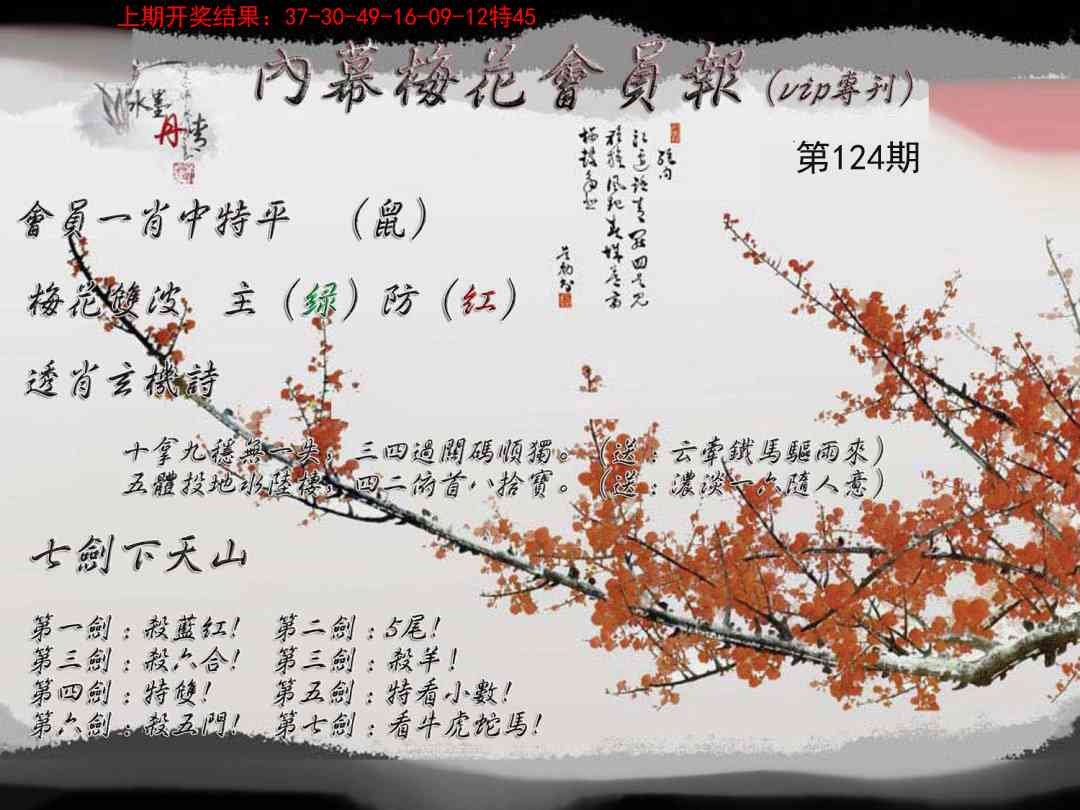 上期开奖结果：37-30-49-16-09-12特45
內幕梅花會員報(vip專刊)
水墨
丹情
第124期
會員一肖中特平 （鼠）
梅花雙波 主（绿）防（红）
透肖玄機詩
十拿九穩無一失，三四過關碼順獨。（送：云牽鐵馬驅雨來）
五體投地水陸樓，四二俯首八拾寶。（送：濃淡一六隨人意）
七劍下天山
第一劍：殺藍紅！ 第二劍：5尾！
第三劍：殺六合！ 第三劍：殺羊！
第四劍：特雙！ 第五劍：特看小數！
第六劍：殺五門！ 第七劍：看牛虎蛇馬！